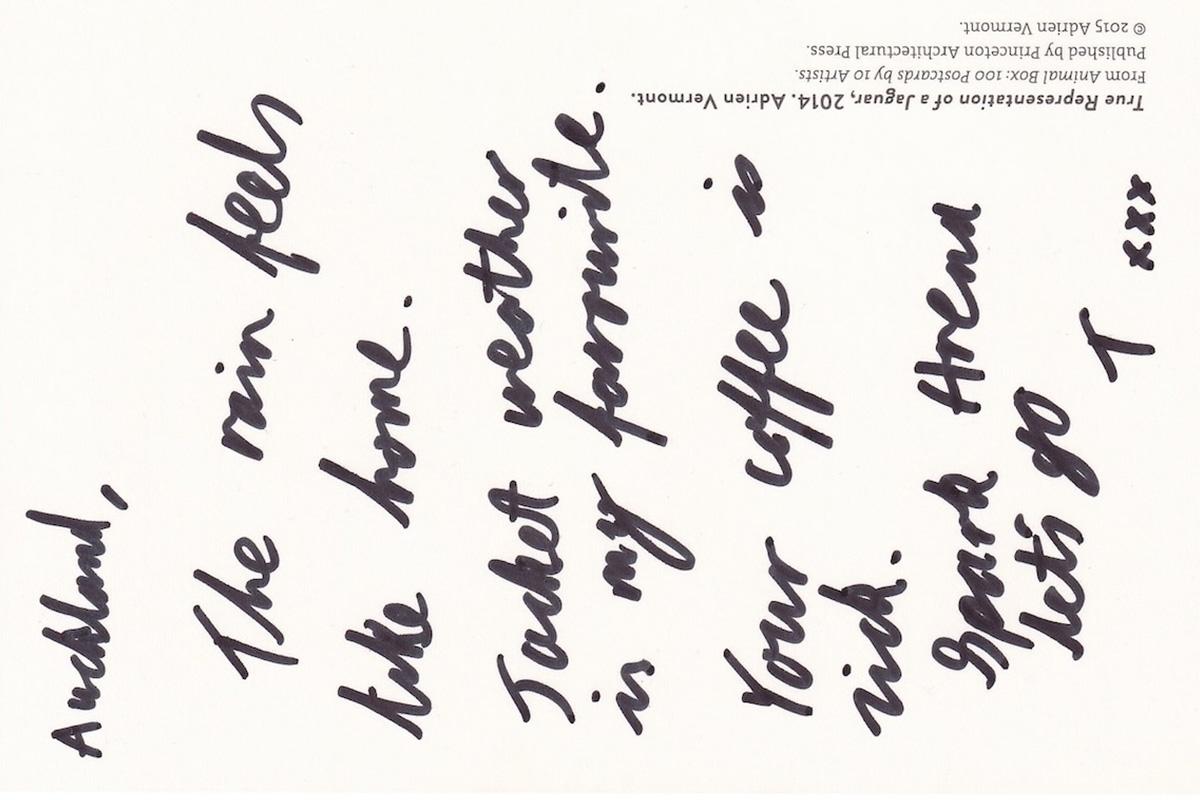 Auckland,
The rain feels
like home.
Jacket weather
is my favourite.
Your coffee is
sick.
Spark Arena
let's go
T
xxx
True Representation of a Jaguar, 2014. Adrien Vermont.
From Animal Box: 100 Postcards by 10 Artists.
Published by Princeton Architectural Press.
© 2015 Adrien Vermont.